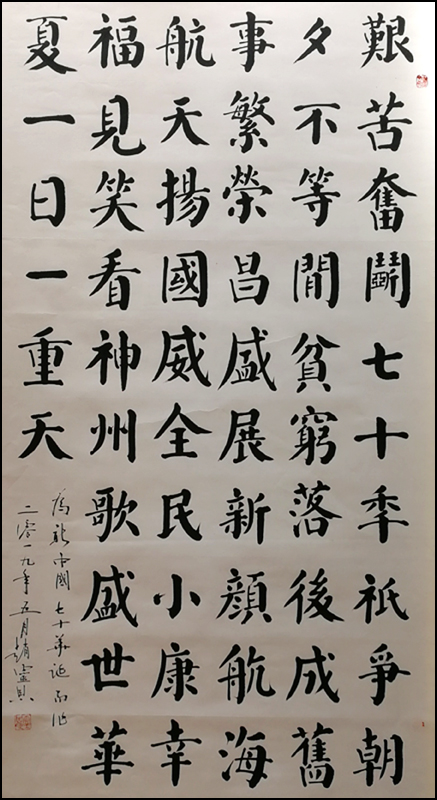 艱苦奮鬭七十秊祇爭朝
夕不等閒貧窮落後成舊
事繁榮昌盛展新顏航海
航天揚國威全民小康幸
福見笑看神州歌盛世華
夏一日一重天
為新中國七十華誕而作
二零一九年五月趙